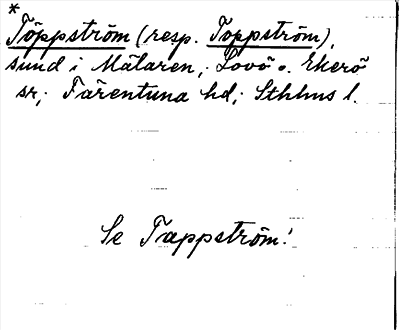 *
Töppström (resp. Toppström),
sund i Mälaren, Lovö o. Ekerö
sr, Färentuna hd, Sthlms l.
Se Tappström!